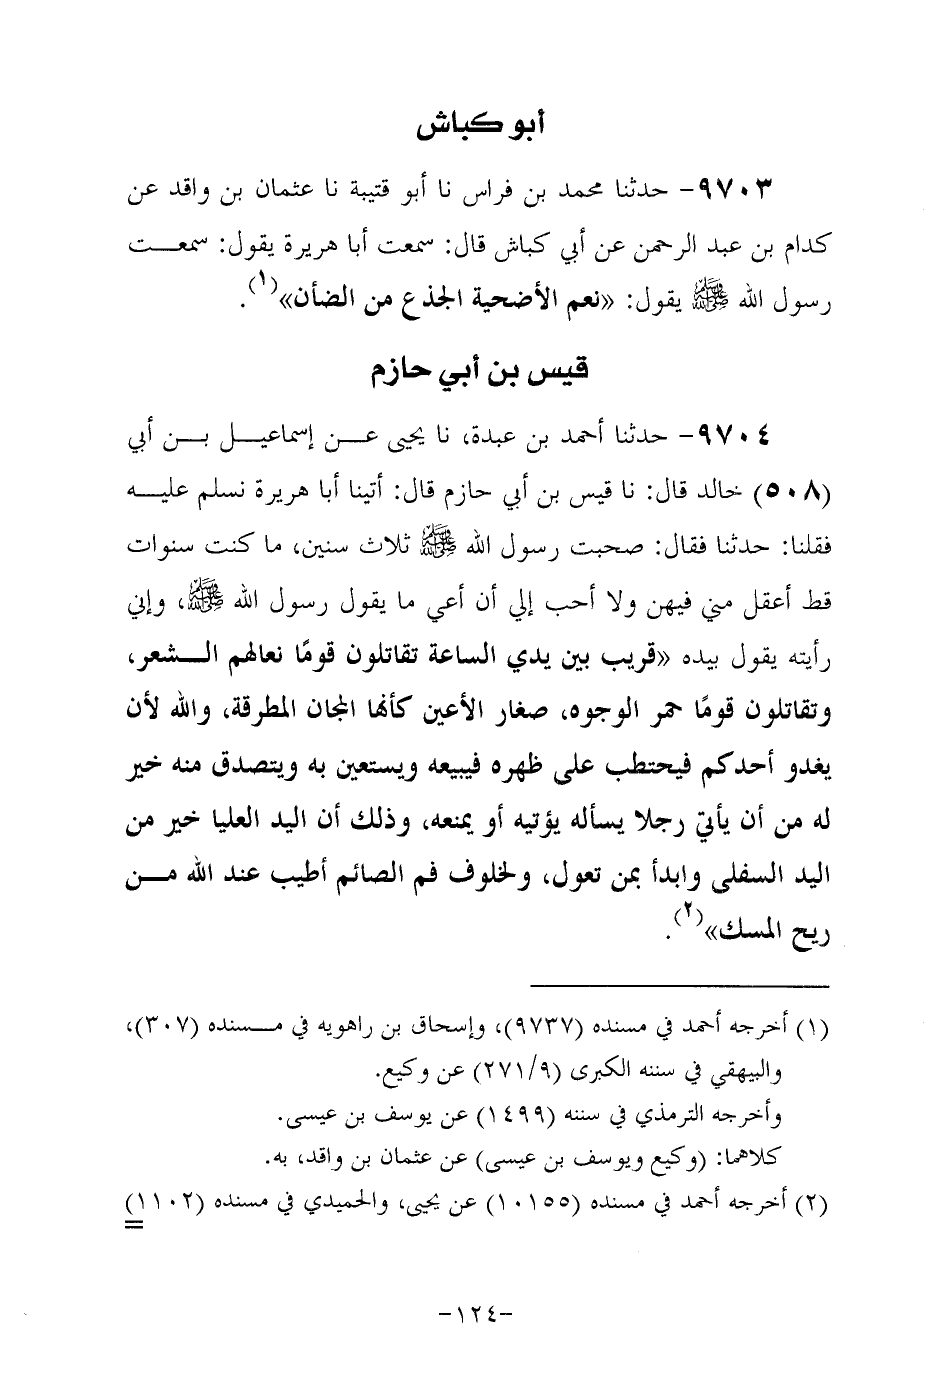 أبو كباش
٩٧٠٣- حدثنا محمد بن فراس نا أبو قتيبة نا عثمان بن واقد عن
كدام بن عبد الرحمن عن أبي كباش قال: سمعت أبا هريرة يقول: سمعت
رسول الله ﷺ يقول: «نعم الأضحية الجذع من الضأن»(١).
قيس بن أبي حازم
٩٧٠٤- حدثنا أحمد بن عبدة، نا يحيى عن إسماعيل بن أبي
(٥٠٨) خالد قال: نا قيس بن أبي حازم قال: أتينا أبا هريرة نسلم عليه
فقلنا: حدثنا فقال: صحبت رسول الله ﷺ ثلاث سنين، ما كنت سنوات
قط أعقل مني فيهن ولا أحب إلي أن أعي ما يقول رسول الله ﷺ، وإني
رأيته يقول بيده «قريب بين يدي الساعة تقاتلون قومًا نعالهم الشعر،
وتقاتلون قومًا حمر الوجوه، صغار الأعين كأنها المجان المطرقة، والله لأن
يغدو أحدكم فيحتطب على ظهره فيبيعه ويستعين به ويتصدق منه خير
له من أن يأتي رجلا يسأله يؤتيه أو يمنعه، وذلك أن اليد العليا خير من
اليد السفلى وابدأ بمن تعول، ولخلوف فم الصائم أطيب عند الله من
ريح المسك»(٢).
(١) أخرجه أحمد في مسنده (٩٧٣٧)، وإسحاق بن راهويه في مسنده (٣٠٧)،
والبيهقي في سننه الكبرى (٢٧١/٩) عن وكيع.
وأخرجه الترمذي في سننه (١٤٩٩) عن يوسف بن عيسى.
كلاهما: (وكيع ويوسف بن عيسى) عن عثمان بن واقد، به.
(٢) أخرجه أحمد في مسنده (١٠١٥٥) عن يحيى، والحميدي في مسنده (١١٠٢)
=
-١٢٤-